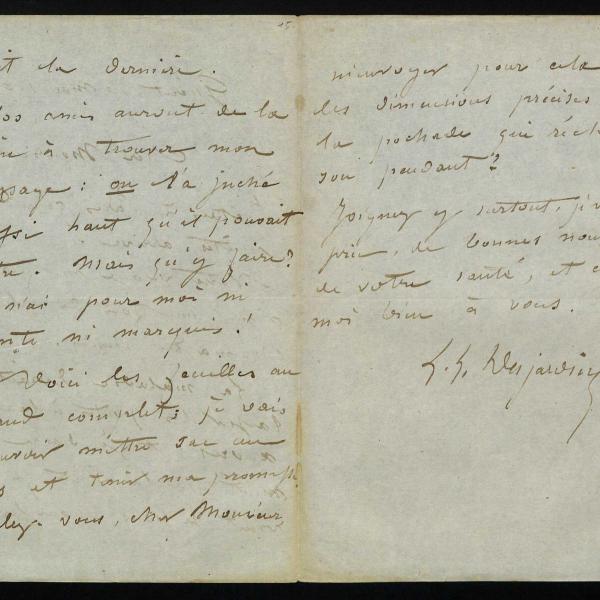 15.
it la dernière.
os amis auront de la
ne à trouver mon
sage: on l'a juché
ssi haut qu'il pouvait
tre. Mais qu'y faire?
n'ai pour moi ni
ni marquis!
Voici les feuilles au
and complet; je vais
uvoir mettre sac au
s et tenir ma promesse.
lez-vous, cher Monsieur
m'envoyer pour cela
les dimensions précises
la pochade qui récl
son pendant?
Joignez y surtout, j'v
prie, de bonnes nou
de votre santé, et c
moi bien à vous.
L. L. Desjardins